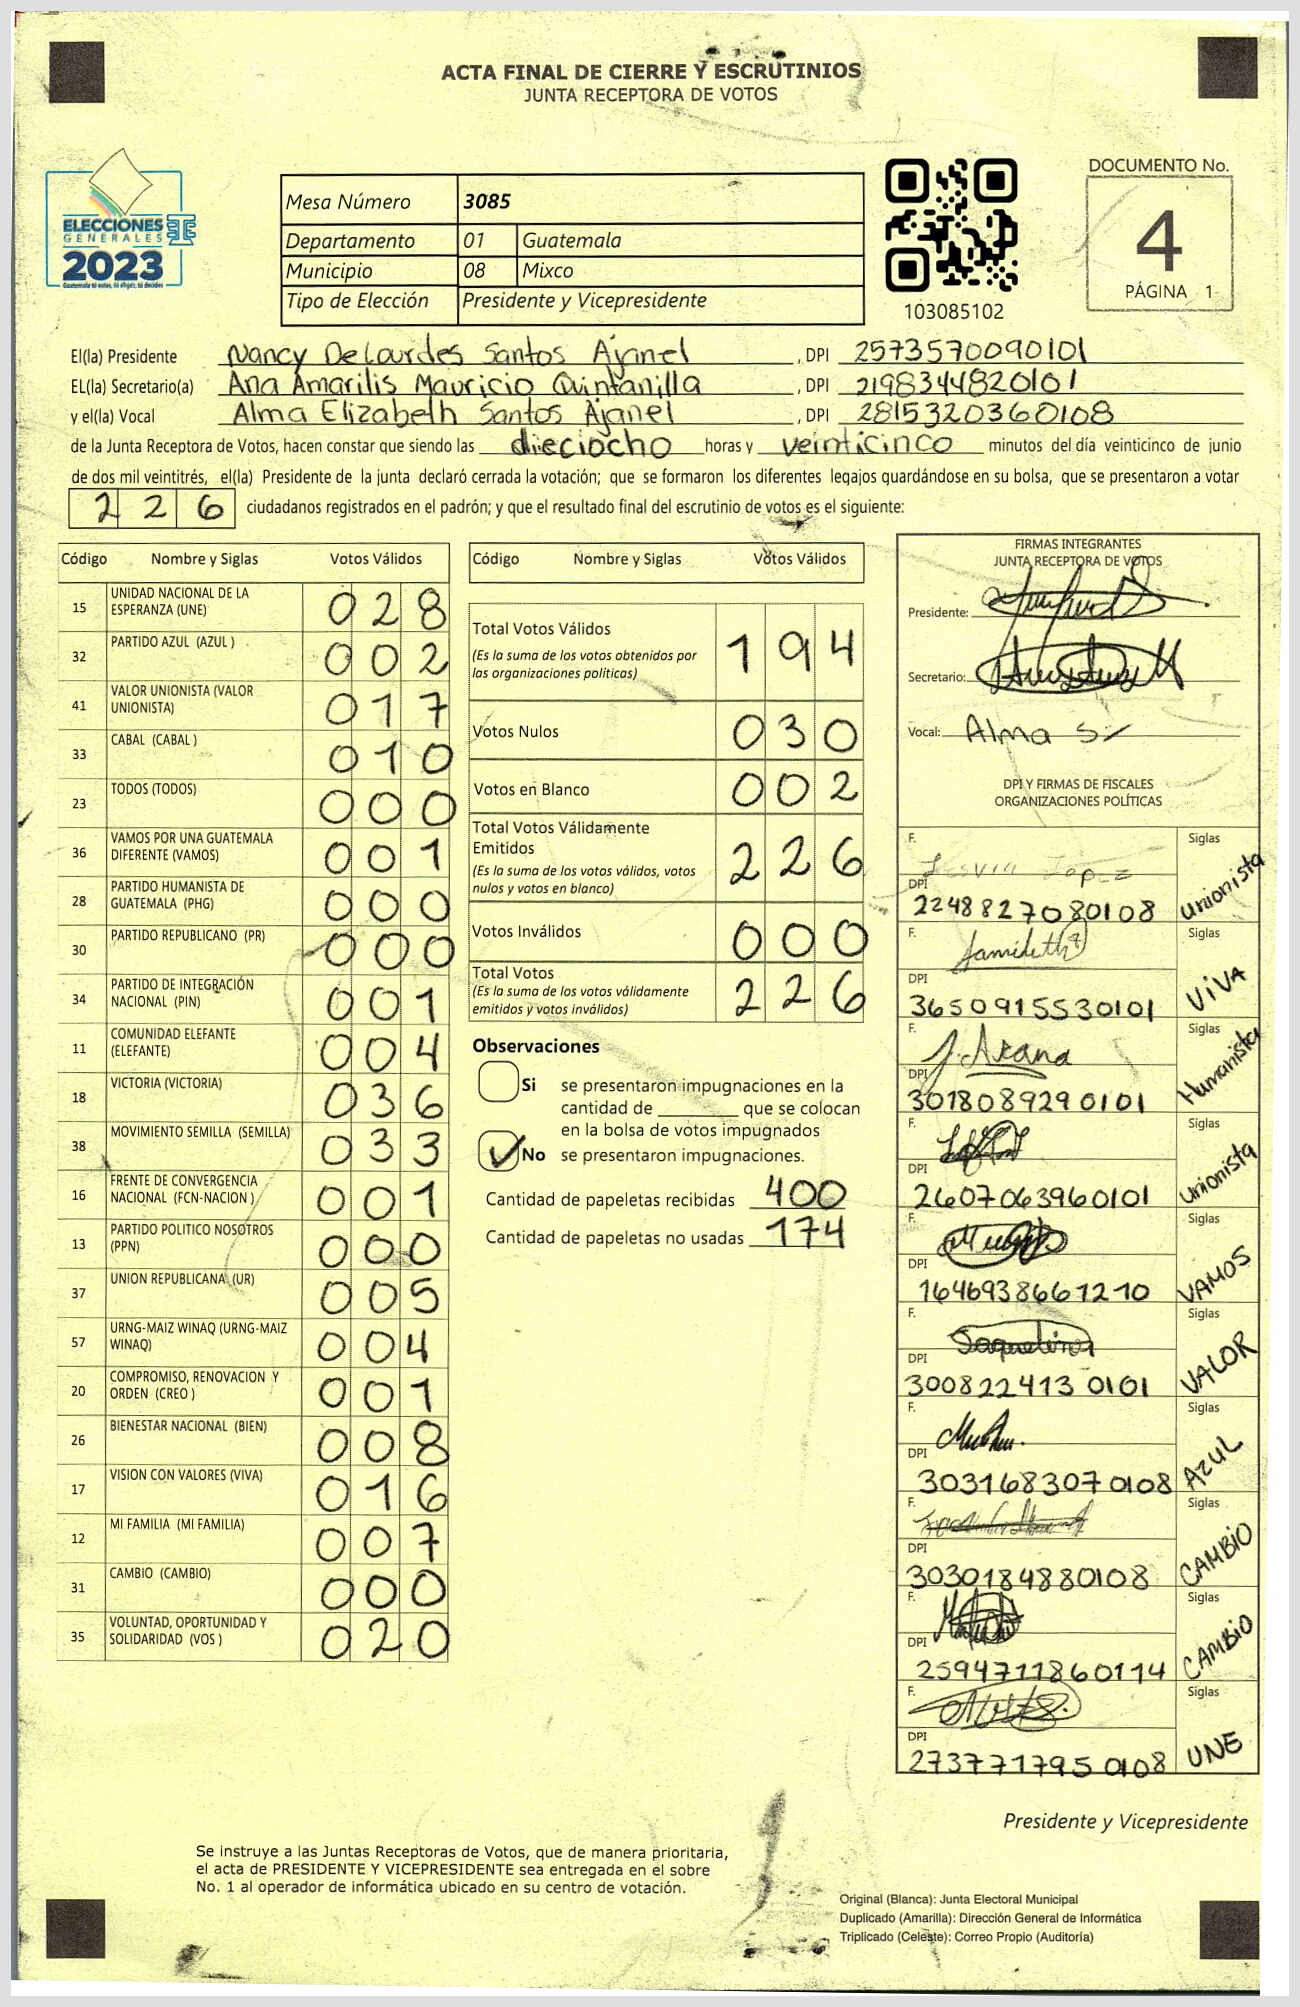 ACTA FINAL DE CIERRE Y ESCRUTINIOS
JUNTA RECEPTORA DE VOTOS
ELECCIONES
GENERALES
2023
Guatemala tú votas, tú eliges, tú decides
Mesa Número 3085
Departamento 01 Guatemala
Municipio 08 Mixco
Tipo de Elección Presidente y Vicepresidente
103085102
DOCUMENTO No.
4
PÁGINA 1
El(la) Presidente Nancy De Lourdes Santos Ajanel , DPI 2573570090101
EL(la) Secretario(a) Ana Amarilis Mauricio Quintanilla , DPI 2198344820101
y el(la) Vocal Alma Elizabeth Santos Ajanel , DPI 2815320360108
de la Junta Receptora de Votos, hacen constar que siendo las dieciocho horas y veinticinco minutos del día veinticinco de junio
de dos mil veintitrés, el(la) Presidente de la junta declaró cerrada la votación; que se formaron los diferentes legajos guardándose en su bolsa, que se presentaron a votar
226 ciudadanos registrados en el padrón; y que el resultado final del escrutinio de votos es el siguiente:
Código Nombre y Siglas Votos Válidos
15 UNIDAD NACIONAL DE LA ESPERANZA (UNE) 028
32 PARTIDO AZUL (AZUL ) 002
41 VALOR UNIONISTA (VALOR UNIONISTA) 017
33 CABAL (CABAL ) 010
23 TODOS (TODOS) 000
36 VAMOS POR UNA GUATEMALA DIFERENTE (VAMOS) 001
28 PARTIDO HUMANISTA DE GUATEMALA (PHG) 000
30 PARTIDO REPUBLICANO (PR) 000
34 PARTIDO DE INTEGRACIÓN NACIONAL (PIN) 001
11 COMUNIDAD ELEFANTE (ELEFANTE) 004
18 VICTORIA (VICTORIA) 036
38 MOVIMIENTO SEMILLA (SEMILLA) 033
16 FRENTE DE CONVERGENCIA NACIONAL (FCN-NACION ) 001
13 PARTIDO POLITICO NOSOTROS (PPN) 000
37 UNION REPUBLICANA (UR) 005
57 URNG-MAIZ WINAQ (URNG-MAIZ WINAQ) 004
20 COMPROMISO, RENOVACION Y ORDEN (CREO ) 001
26 BIENESTAR NACIONAL (BIEN) 008
17 VISION CON VALORES (VIVA) 016
12 MI FAMILIA (MI FAMILIA) 007
31 CAMBIO (CAMBIO) 000
35 VOLUNTAD, OPORTUNIDAD Y SOLIDARIDAD (VOS ) 020
Código Nombre y Siglas Votos Válidos
Total Votos Válidos 194
(Es la suma de los votos obtenidos por
las organizaciones politicas)
Votos Nulos 030
Votos en Blanco 002
Total Votos Válidamente
Emitidos 226
(Es la suma de los votos válidos, votos
nulos y votos en blanco)
Votos Inválidos 000
Total Votos 226
(Es la suma de los votos válidamente
emitidos y votos inválidos)
Observaciones
Si se presentaron impugnaciones en la
cantidad de ________ que se colocan
en la bolsa de votos impugnados
No se presentaron impugnaciones.
Cantidad de papeletas recibidas 400
Cantidad de papeletas no usadas 174
FIRMAS INTEGRANTES
JUNTA RECEPTORA DE VOTOS
Presidente:
Secretario:
Vocal: Alma S
DPI Y FIRMAS DE FISCALES
ORGANIZACIONES POLÍTICAS
F. Siglas
DPI 2248827080108 Unionista
F. Siglas
DPI 3650915530101 VIVA
F. J. Arana Siglas
DPI 3018089290101 Humanista
F. Siglas
DPI 2607063960101 Unionista
F. Siglas
DPI 1646938661210 VAMOS
F. Siglas
DPI 3008224130101 VALOR
F. Siglas
DPI 3031683070108 AZUL
F. Siglas
DPI 3030184880108 CAMBIO
F. Siglas
DPI 2594711860114 CAMBIO
F. Siglas
DPI 2737717950108 UNE
Presidente y Vicepresidente
Se instruye a las Juntas Receptoras de Votos, que de manera prioritaria,
el acta de PRESIDENTE Y VICEPRESIDENTE sea entregada en el sobre
No. 1 al operador de informática ubicado en su centro de votación.
Original (Blanca): Junta Electoral Municipal
Duplicado (Amarilla): Dirección General de Informática
Triplicado (Celeste): Correo Propio (Auditoría)